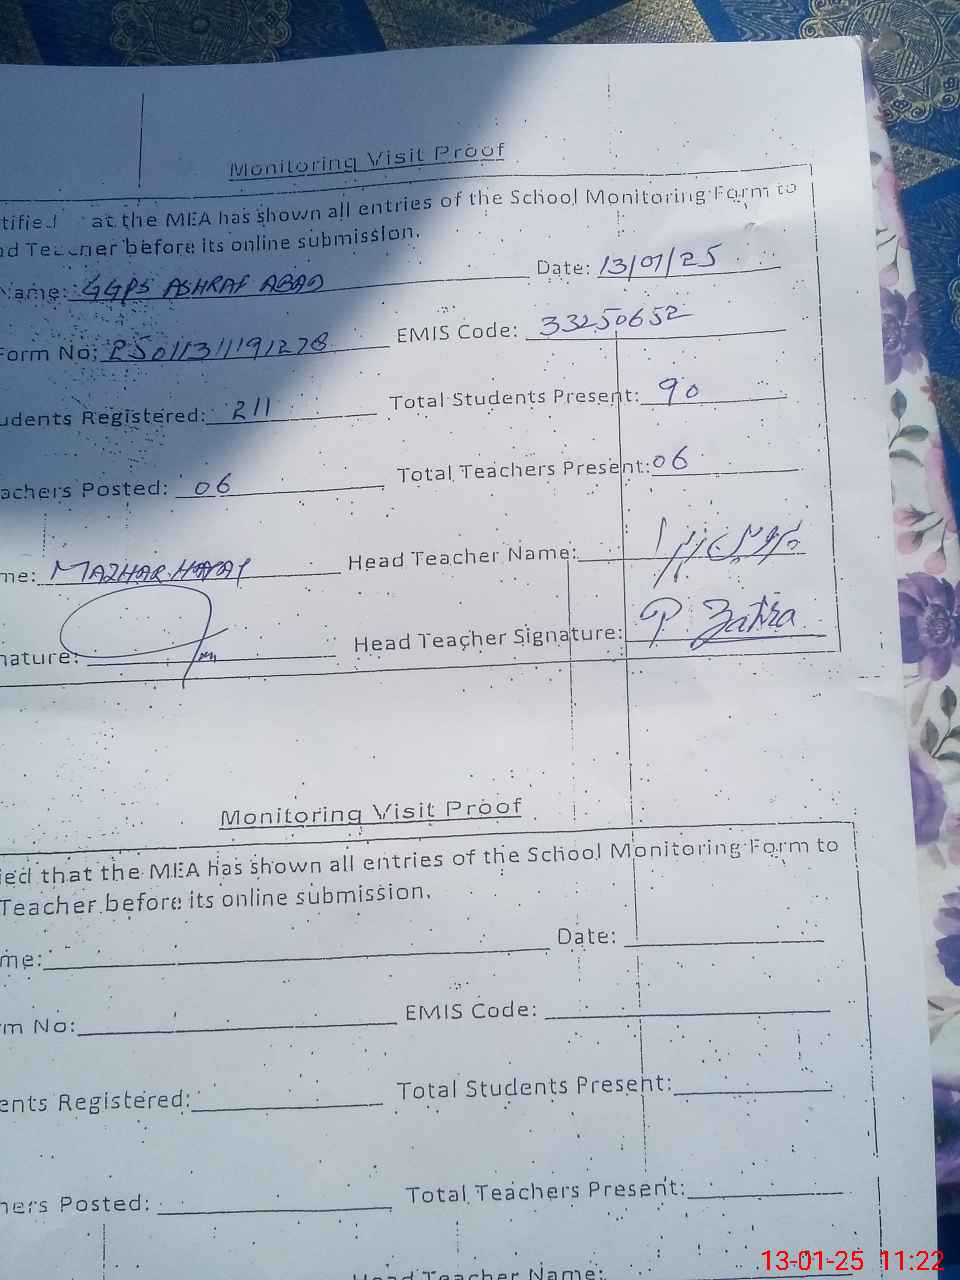 Monitoring Visit Proof
at the MEA has shown all entries of the School Monitoring Form to
before its online submission.
Name: GGPS ASHRAF ABAD Date: 13/01/25
Form No: EMIS Code: 33250652
udents Registered: 211 Total Students Present: 90
achers Posted: 06 Total Teachers Present: 06
me: MAZHAR HAYAT Head Teacher Name:
nature: Head Teacher Signature: P. Zahra
Monitoring Visit Proof
ied that the MEA has shown all entries of the School Monitoring Form to
Teacher before its online submission.
me: Date:
rm No: EMIS Code:
ents Registered: Total Students Present:
hers Posted: Total Teachers Present:
Head Teacher Name:
13-01-25 11:22